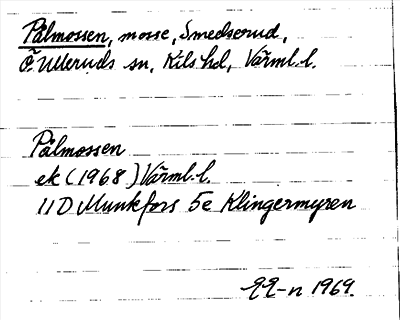 Pålmossen, mosse, Smedserud,
Ö Ulleruds sn, Kils hd, Värml. l.
Pålmossen
ek (1968) Värml. l.
11D Munkfors 5e Klingermyren
1969.